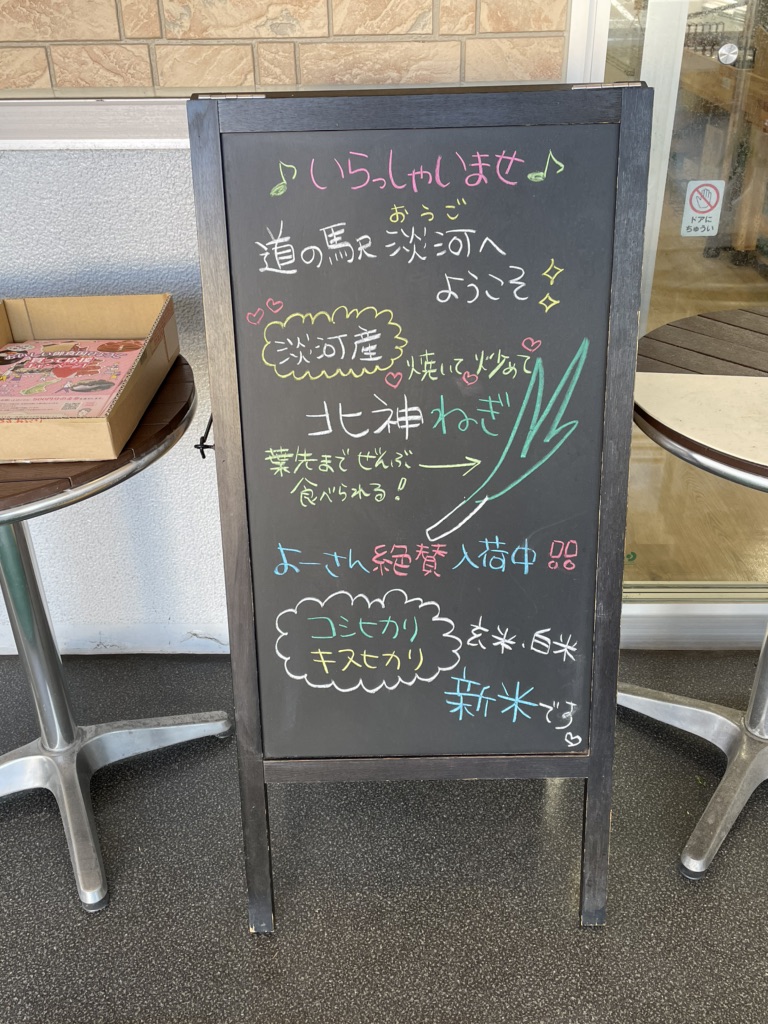 ♪いらっしゃいませ♪
おうご
道の駅 淡河へ
ようこそ
淡河産
焼いて 炒めて
北神ねぎ
葉先まで ぜんぶ
食べられる!
よーさん絶賛入荷中!!
コシヒカリ
キヌヒカリ
玄米、白米
新米です
ドアに
ちゅうい